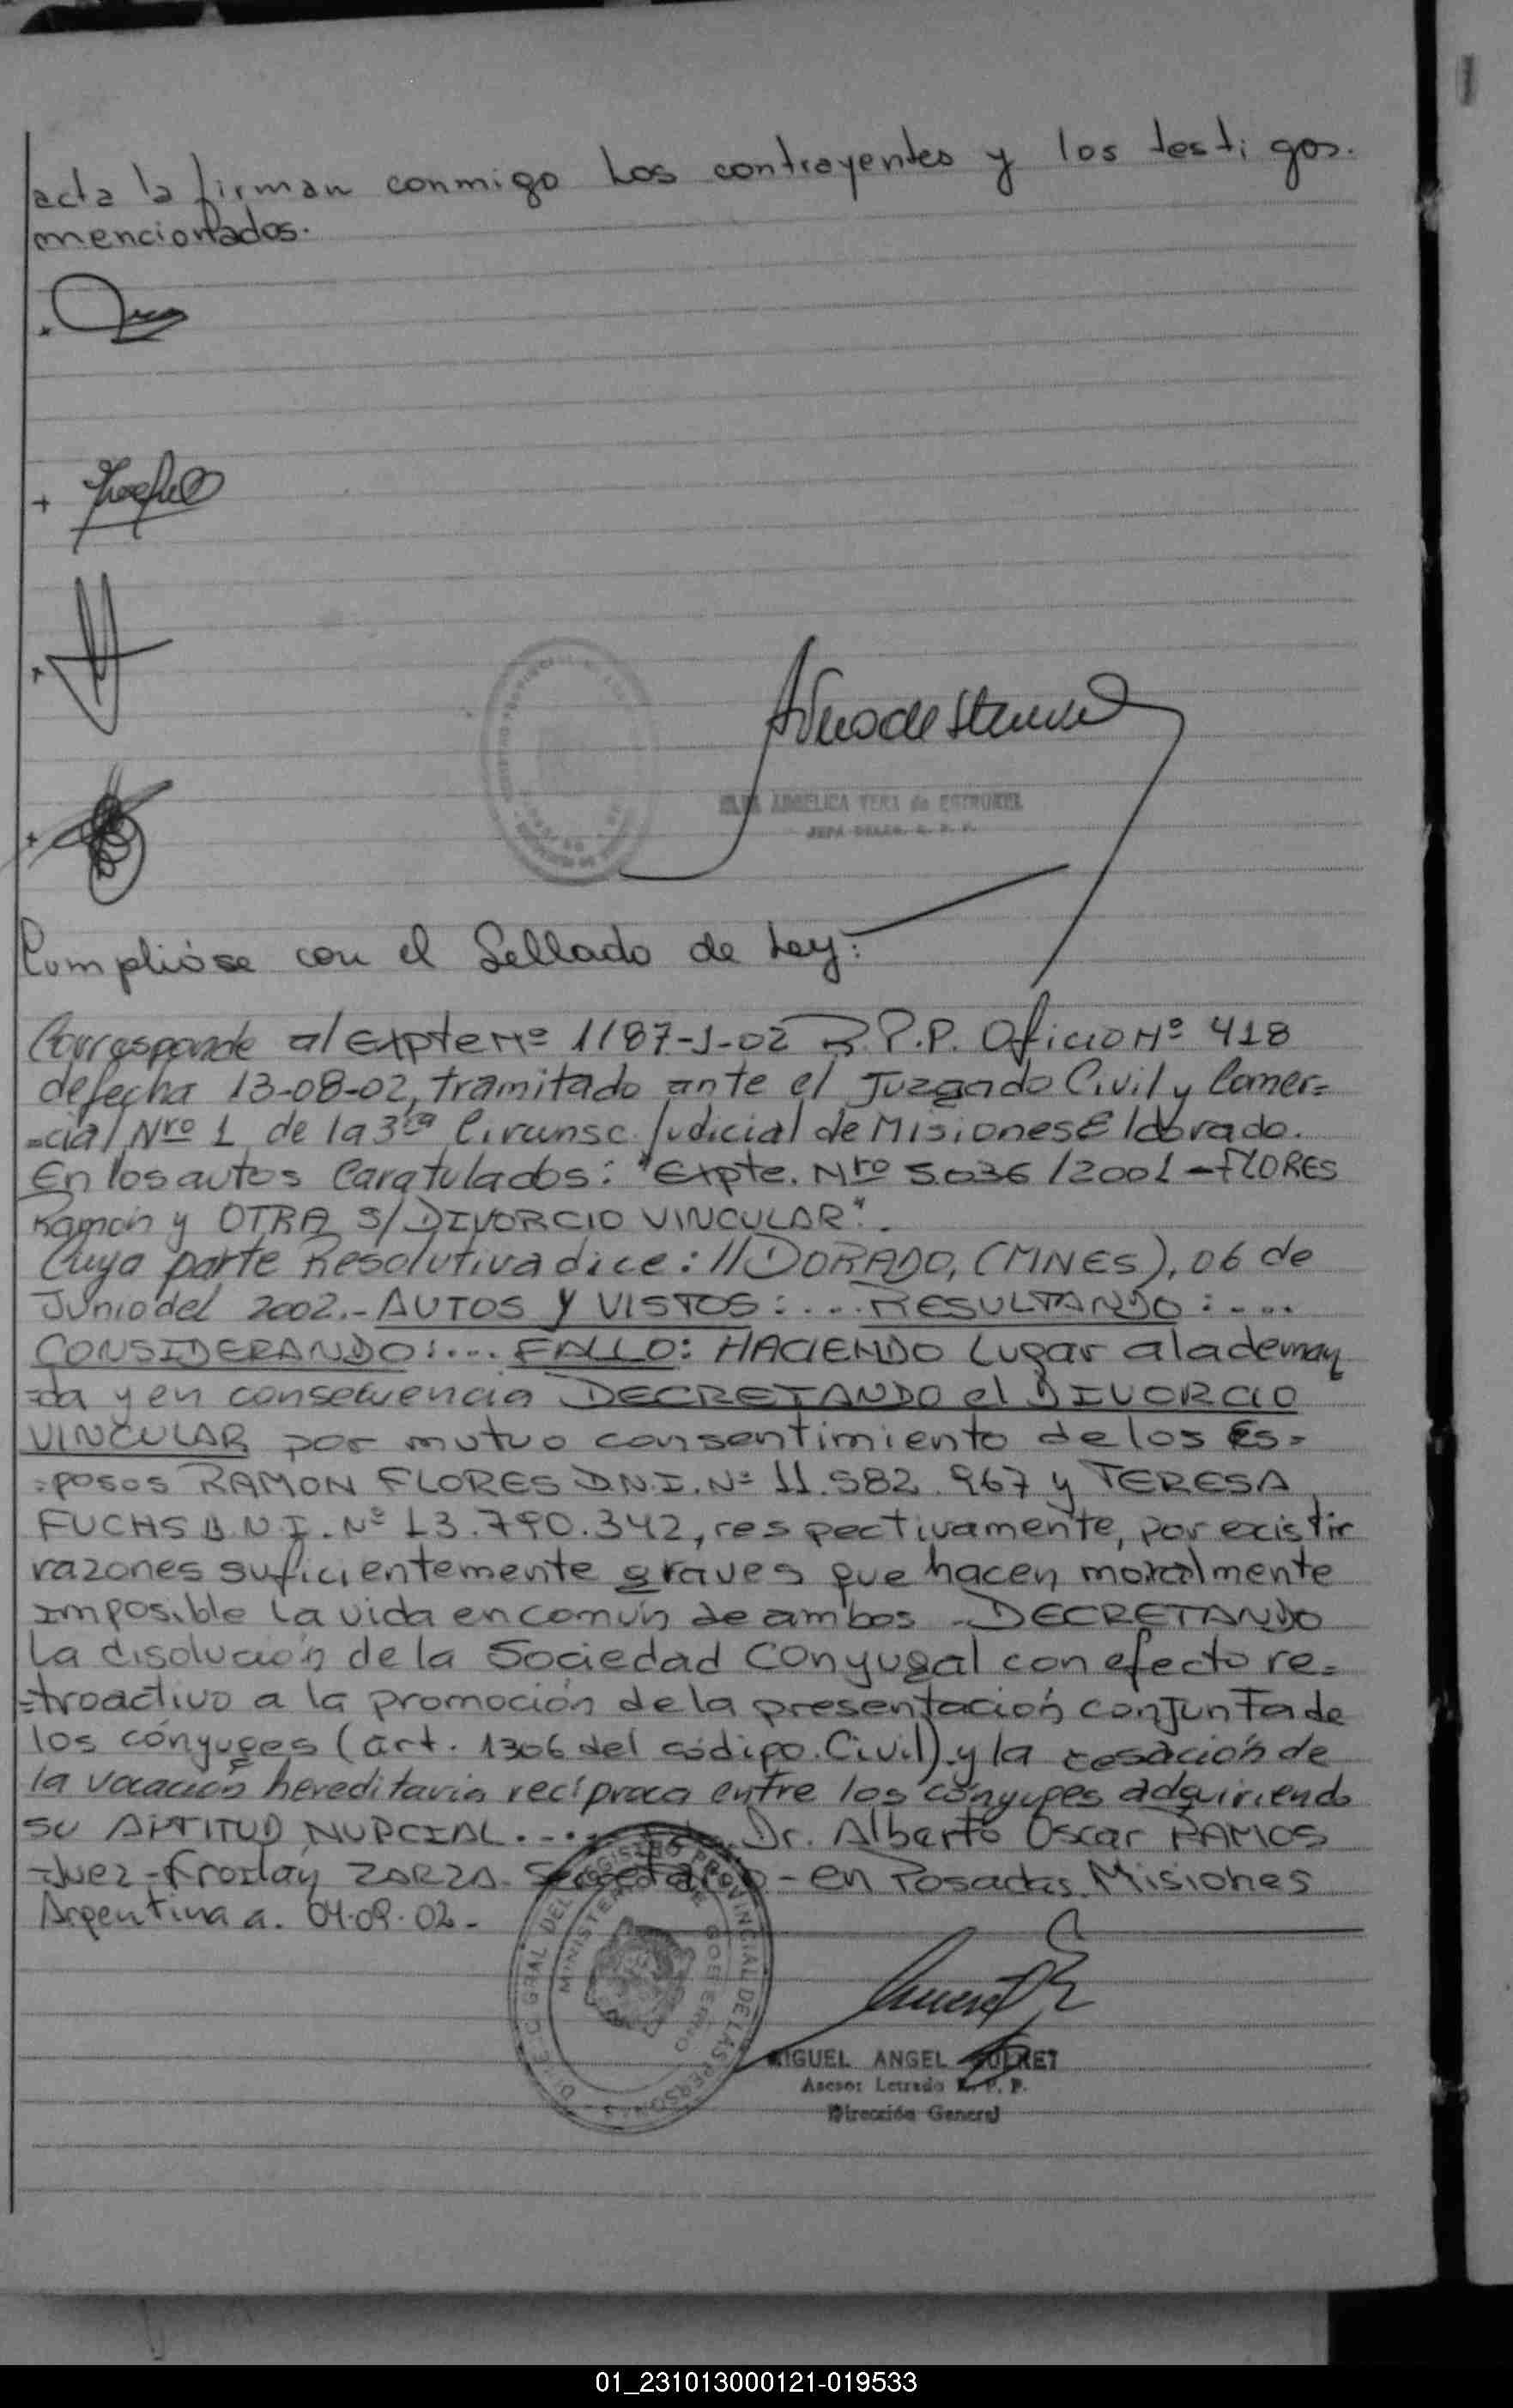 acta la firman conmigo Los contrayentes y los testigos.
mencionados.
ANGELICA VERA de
JEFA
Cumplióse con el Sellado de Ley:
Corresponde al Expte Nº 1187-J-02 R.P.P. Oficio Nº 418
de fecha 13-08-02, tramitado ante el Juzgado Civil y Comer=
=cial Nro 1 de la 3ra Circunsc. Judicial de Misiones Eldorado.
En los autos Caratulados: "Expte. Nro 5.036/2001 - FLORES
Ramón y OTRA S/DIVORCIO VINCULAR".
Cuya parte Resolutiva dice: //DORADO, (MNES), 06 de
Junio del 2002.- AUTOS Y VISTOS:.... RESULTANDO:....
CONSIDERANDO:.... FALLO: HACIENDO Lugar a la deman
=da y en consecuencia DECRETANDO el DIVORCIO
VINCULAR por mutuo consentimiento de los Es=
=posos RAMON FLORES D.N.I. Nº 11.582.967 y TERESA
FUCHS D.N.I. Nº 13.790.342, respectivamente, por existir
razones suficientemente graves que hacen moralmente
imposible La vida en común de ambos - DECRETANDO
La disolución de la Sociedad Conyugal con efecto re=
=troactivo a la promoción de la presentación conjunta de
los cónyuges (art. 1306 del código Civil) y la cesación de
la vocación hereditaria recíproca entre los cónyuges adquiriendo
su APTITUD NUPCIAL.... Dr. Alberto Oscar RAMOS
-Juez - Froilán ZARZA - Secretario - en Posadas, Misiones
Argentina a. 04.09.02.-
DIREC. GRAL DEL REGISTRO PROVINCIAL DE LAS PERSONAS
MINISTERIO DE GOBIERNO
MIGUEL ANGEL
Asesor Letrado R. P. P.
Dirección General
01_231013000121-019533